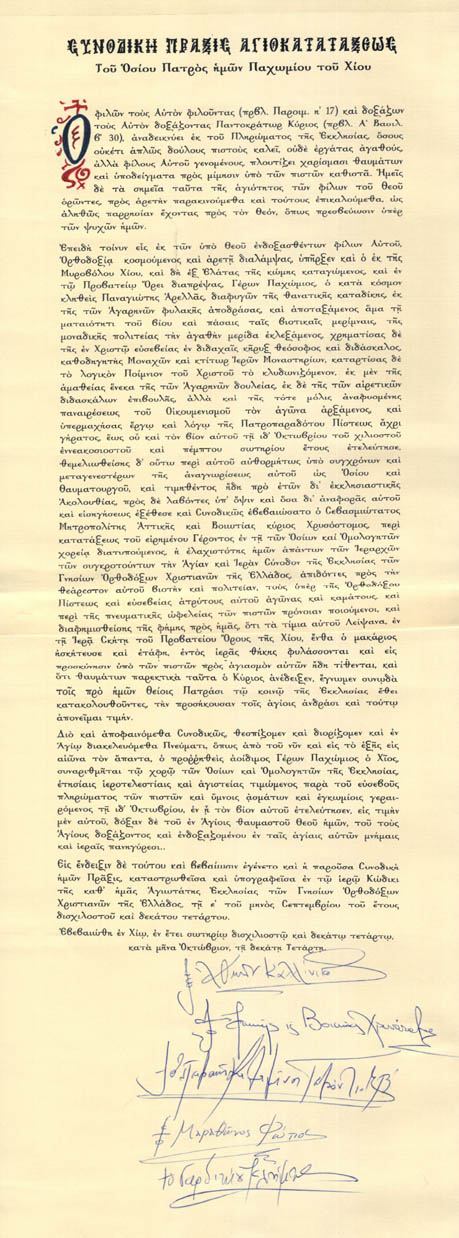 ΣΥΝΟΔΙΚΗ ΠΡΑΞΙΣ ΑΓΙΟΚΑΤΑΤΑΞΕΩΣ
Τοῦ Ὁσίου Πατρὸς ἡμῶν Παχωμίου τοῦ Χίου
Ὁ φιλῶν τοὺς Αὐτὸν φιλοῦντας (πρβλ. Παροιμ. η' 17) καὶ δοξάζων
τοὺς Αὐτὸν δοξάζοντας Παντοκράτωρ Κύριος (πρβλ. Α' Βασιλ.
β' 30), ἀναδεικνύει ἐκ τοῦ Πληρώματος τῆς Ἐκκλησίας, ὅσους
οὐκέτι ἁπλῶς δούλους πιστοὺς καλεῖ, οὐδὲ ἐργάτας ἀγαθούς,
ἀλλὰ φίλους Αὐτοῦ γενομένους, πλουτίζει χαρίσμασι θαυμάτων
καὶ ὑποδείγματα πρὸς μίμησιν ὑπὸ τῶν πιστῶν καθιστᾶ. Ἡμεῖς
δὲ τὰ σημεῖα ταῦτα τῆς ἁγιότητος τῶν φίλων τοῦ Θεοῦ
ὁρῶντες, πρὸς ἀρετὴν παρακινούμεθα καὶ τούτους ἐπικαλούμεθα, ὡς
ἀληθῶς παρρησίαν ἔχοντας πρὸς τὸν Θεόν, ὅπως πρεσβεύωσιν ὑπὲρ
τῶν ψυχῶν ἡμῶν.
Ἐπειδὴ τοίνυν εἷς ἐκ τῶν ὑπὸ Θεοῦ ἐνδοξασθέντων φίλων Αὐτοῦ,
Ὀρθοδοξίᾳ κοσμούμενος καὶ ἀρετῇ διαλάμψας, ὑπῆρξεν καὶ ὁ ἐκ τῆς
Μυροβόλου Χίου, καὶ δὴ ἐξ Ἐλάτας τῆς κώμης καταγόμενος, καὶ ἐν
τῷ Προβατείῳ Ὄρει διαπρέψας, Γέρων Παχώμιος, ὁ κατὰ κόσμον
κληθεὶς Παναγιώτης Ἀρελλᾶς, διαφυγὼν τῆς θανατικῆς καταδίκης, ἐκ
τῆς τῶν Ἀγαρηνῶν φυλακῆς ἀποδράσας, καὶ ἀποταξάμενος ἅμα τῇ
ματαιότητι τοῦ βίου καὶ πάσαις ταῖς βιοτικαῖς μερίμναις, τῆς
μοναδικῆς πολιτείας τὴν ἀγαθὴν μερίδα ἐκλεξάμενος, χρηματίσας δὲ
τῆς ἐν Χριστῷ εὐσεβείας ἐν διδαχαῖς κῆρυξ θεόσοφος καὶ διδάσκαλος,
καθοδηγητὴς Μοναχῶν καὶ κτίτωρ Ἱερῶν Μοναστηρίων, καταρτίσας δὲ
τὸ λογικὸν Ποίμνιον τοῦ Χριστοῦ τὸ κλυδωνιζόμενον, ἐκ μὲν τῆς
ἀμαθείας ἕνεκα τῆς τῶν Ἀγαρηνῶν δουλείας, ἐκ δὲ τῆς τῶν αἱρετικῶν
διδασκάλων ἐπιβουλῆς, ἀλλὰ καὶ τῆς τότε μόλις ἀναφυομένης
παναιρέσεως τοῦ Οἰκουμενισμοῦ τὸν ἀγῶνα ἀρξάμενος, καὶ
ὑπερμαχήσας ἔργῳ καὶ λόγῳ τῆς Πατροπαραδότου Πίστεως ἄχρι
γήρατος, ἕως οὗ καὶ τὸν βίον αὐτοῦ τῇ ιδ' Ὀκτωβρίου τοῦ χιλιοστοῦ
ἐννεακοσιοστοῦ καὶ πέμπτου σωτηρίου ἔτους ἐτελεύτησε,
θεμελιωθείσης δ' οὕτω περὶ αὐτοῦ αὐθορμήτως ὑπὸ συγχρόνων καὶ
μεταγενεστέρων τῆς ἀναγνωρίσεως αὐτοῦ ὡς Ὁσίου καὶ
Θαυματουργοῦ, καὶ τιμηθέντος ἤδη πρὸ ἐτῶν δι' ἐκκλησιαστικῆς
Ἀκολουθίας, πρὸς δὲ λαβόντες ὑπ' ὄψιν καὶ ὅσα δι' ἀναφορᾶς αὐτοῦ
καὶ εἰσηγήσεως ἐξέθεσε καὶ Συνοδικῶς ἐβεβαιώσατο ὁ Σεβασμιώτατος
Μητροπολίτης Ἀττικῆς καὶ Βοιωτίας κύριος Χρυσόστομος, περὶ
κατατάξεως τοῦ εἰρημένου Γέροντος ἐν τῇ τῶν Ὁσίων καὶ Ὁμολογητῶν
χορείᾳ διατυπούμενος, ἡ ἐλαχιστότης ἡμῶν ἁπάντων τῶν Ἱεραρχῶν
τῶν συγκροτούντων τὴν Ἁγίαν καὶ Ἱερὰν Σύνοδον τῆς Ἐκκλησίας τῶν
Γνησίων Ὀρθοδόξων Χριστιανῶν τῆς Ἑλλάδος, ἀπιδόντες πρὸς τὴν
θεάρεστον αὐτοῦ βιοτὴν καὶ πολιτείαν, τοὺς ὑπὲρ τῆς Ὀρθοδόξου
Πίστεως καὶ εὐσεβείας ἀτρύτους αὐτοῦ ἀγῶνας καὶ καμάτους, καὶ
περὶ τῆς πνευματικῆς ὠφελείας τῶν πιστῶν πρόνοιαν ποιούμενοι, καὶ
διαφημισθείσης τῆς φήμης πρὸς ἡμᾶς, ὅτι τὰ τίμια αὐτοῦ Λείψανα, ἐν
τῇ Ἱερᾷ Σκήτῃ τοῦ Προβατείου Ὄρους τῆς Χίου, ἔνθα ὁ μακάριος
ἠσκήτευσε καὶ ἐτάφη, ἐντὸς ἱερᾶς θήκης φυλάσσονται καὶ εἰς
προσκύνησιν ὑπὸ τῶν πιστῶν πρὸς ἁγιασμὸν αὐτῶν ἤδη τίθενται, καὶ
ὅτι θαυμάτων παρεκτικὰ ταῦτα ὁ Κύριος ἀνέδειξεν, ἔγνωμεν συνῳδὰ
τοῖς πρὸ ἡμῶν θείοις Πατράσι τῷ κοινῷ τῆς Ἐκκλησίας ἔθει
κατακολουθοῦντες, τὴν προσήκουσαν τοῖς ἁγίοις ἀνδράσι καὶ τούτῳ
ἀπονεῖμαι τιμήν.
Διὸ καὶ ἀποφαινόμεθα Συνοδικῶς, θεσπίζομεν καὶ διορίζομεν καὶ ἐν
Ἁγίῳ διακελευόμεθα Πνεύματι, ὅπως ἀπὸ τοῦ νῦν καὶ εἰς τὸ ἑξῆς εἰς
αἰῶνα τὸν ἅπαντα, ὁ προῤῥηθεὶς ἀοίδιμος Γέρων Παχώμιος ὁ Χῖος,
συναριθμῆται τῷ χορῷ τῶν Ὁσίων καὶ Ὁμολογητῶν τῆς Ἐκκλησίας,
ἐτησίαις ἱεροτελεστίαις καὶ ἁγιστείαις τιμώμενος παρὰ τοῦ εὐσεβοῦς
πληρώματος τῶν πιστῶν καὶ ὕμνοις ᾀσμάτων καὶ ἐγκωμίοις γεραι-
ρόμενος τῇ ιδ' Ὀκτωβρίου, ἐν ᾗ τὸν βίον αὐτοῦ ἐτελεύτησεν, εἰς τιμὴν
μὲν αὐτοῦ, δόξαν δὲ τοῦ ἐν Ἁγίοις θαυμαστοῦ Θεοῦ ἡμῶν, τοῦ τοὺς
Ἁγίους δοξάζοντος καὶ ἐνδοξαζομένου ἐν ταῖς ἁγίαις αὐτῶν μνήμαις
καὶ ἱεραῖς πανηγύρεσι..
Εἰς ἔνδειξιν δὲ τούτου καὶ βεβαίωσιν ἐγένετο καὶ ἡ παροῦσα Συνοδικὴ
ἡμῶν Πρᾶξις, καταστρωθεῖσα καὶ ὑπογραφεῖσα ἐν τῷ ἱερῷ Κώδικι
τῆς καθ' ἡμᾶς Ἁγιωτάτης Ἐκκλησίας τῶν Γνησίων Ὀρθοδόξων
Χριστιανῶν τῆς Ἑλλάδος, τῇ ε' τοῦ μηνὸς Σεπτεμβρίου τοῦ ἔτους
δισχιλοστοῦ καὶ δεκάτου τετάρτου.
Ἐβεβαιώθη ἐν Χίῳ, ἐν ἔτει σωτηρίῳ δισχιλιοστῷ καὶ δεκάτῳ τετάρτῳ,
κατὰ μῆνα Ὀκτώβριον, τῇ δεκάτῃ Τετάρτῃ.
Ἀθηνῶν Καλλίνικος
Μαραθῶνος Φώτιος